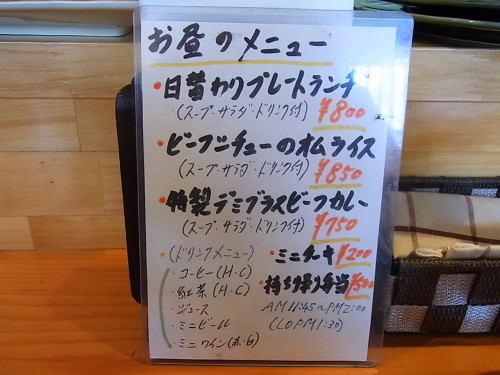 お昼のメニュー
・日替わりプレートランチ
(スープ・サラダ・ドリンク付) ¥800
・ビーフシチューのオムライス
(スープ・サラダ・ドリンク付) ¥850
・特製デミグラスビーフカレー
(スープ・サラダ・ドリンク付) ¥750
(ドリンクメニュー)
・コーヒー(H・C)
・紅茶(H・C)
・ジュース
・ミニビール
・ミニワイン(赤・白)
・ミニケーキ ¥200
・持ち帰り弁当 ¥500
AM11:45~PM2:00
(LOPM1:30)